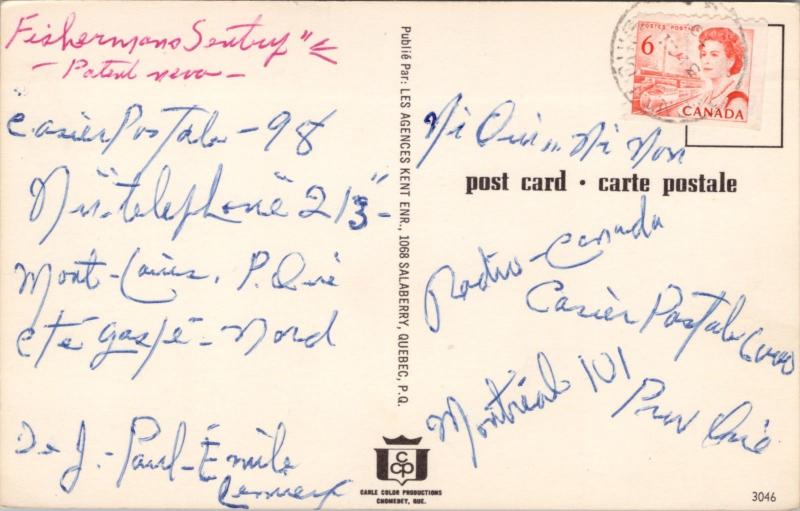 Fishermans Sentry"
- Patent neva -
"Casier Postale - 98
Nü: telephone "213" -
Mont-Louis, P. Qué
cté gaspé - Nord
De J. - Paul-Émile
Publié Par: LES AGENCES KENT ENR., 1068 SALABERRY, QUEBEC, P.Q.
CCP
CARLE COLOR PRODUCTIONS
CHOMEDEY, QUE.
POSTES POSTAGE
6
CANADA
Ni Oui... Ni Non
post card · carte postale
Radio-Canada
Casier Postale 6000
Montréal 101
Prov Qué
3046